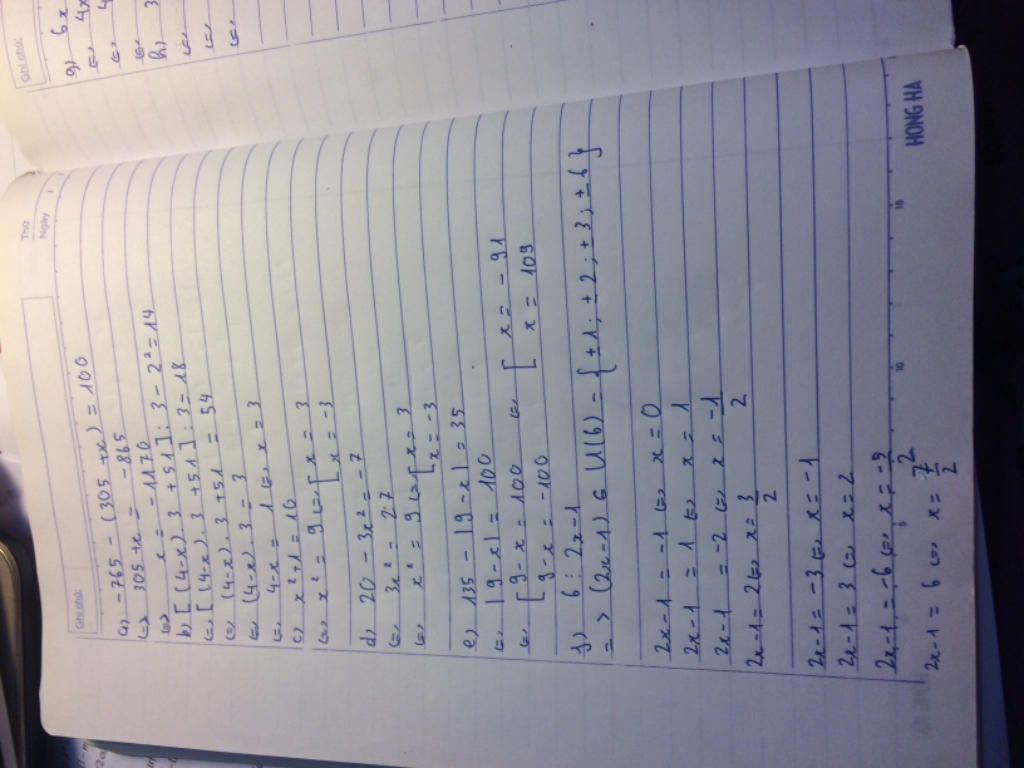 Ghi chú:
Thứ
Ngày
a) -765 - (305 + x) = 100
(=) 305 + x = -865
(=) x = -1170
b) [(4-x).3 + 51] : 3 - 2² = 14
(=) [(4-x).3 + 51] : 3 = 18
(=) (4-x).3 + 51 = 54
(=) (4-x).3 = 3
(=) 4-x = 1 (=) x = 3
c) x² + 1 = 10
(=) x² = 9 (=) [ x = 3
[ x = -3
d) 20 - 3x² = -7
(=) 3x² = 27
(=) x² = 9 (=) [ x = 3
[ x = -3
e) 135 - |9-x| = 35
(=) |9-x| = 100
(=) [ 9-x = 100 (=) [ x = -91
[ 9-x = -100 [ x = 109
f) 6 : 2x-1
=> (2x-1) ∈ Ư(6) = {±1; ±2; ±3; ±6}
2x-1 = -1 (=) x = 0
2x-1 = 1 (=) x = 1
2x-1 = -2 (=) x = -1/2
2x-1 = 2 (=) x = 3/2
2x-1 = -3 (=) x = -1
2x-1 = 3 (=) x = 2
2x-1 = -6 (=) x = -5/2
2x-1 = 6 (=) x = 7/2
5 10 15
HONG HA
Ghi chú:
g) 6x
(=) 4x
(=) 4
(=)
h) 3
(=)
(=)
(=)